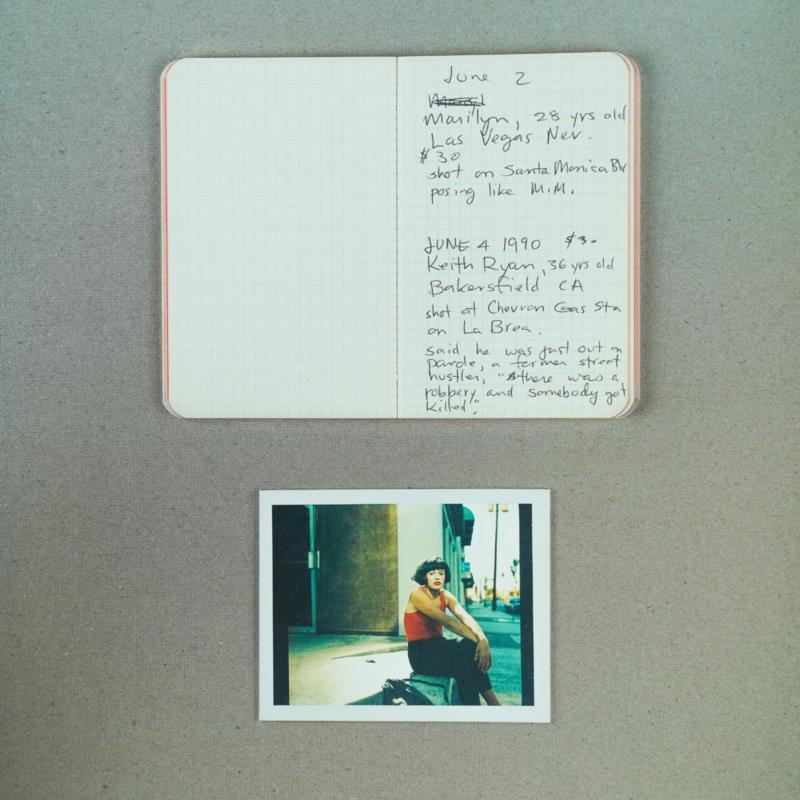 June 2
Marilyn, 28 yrs old
Las Vegas Nev.
$30
shot on Santa Monica Blv
posing like M.M.
JUNE 4 1990 $3-
Keith Ryan, 36 yrs old
Bakersfield CA
shot at Chevron Gas Sta
on La Brea.
said he was just out on
parole, a former street
hustler, "there was a
robbery and somebody got
killed".